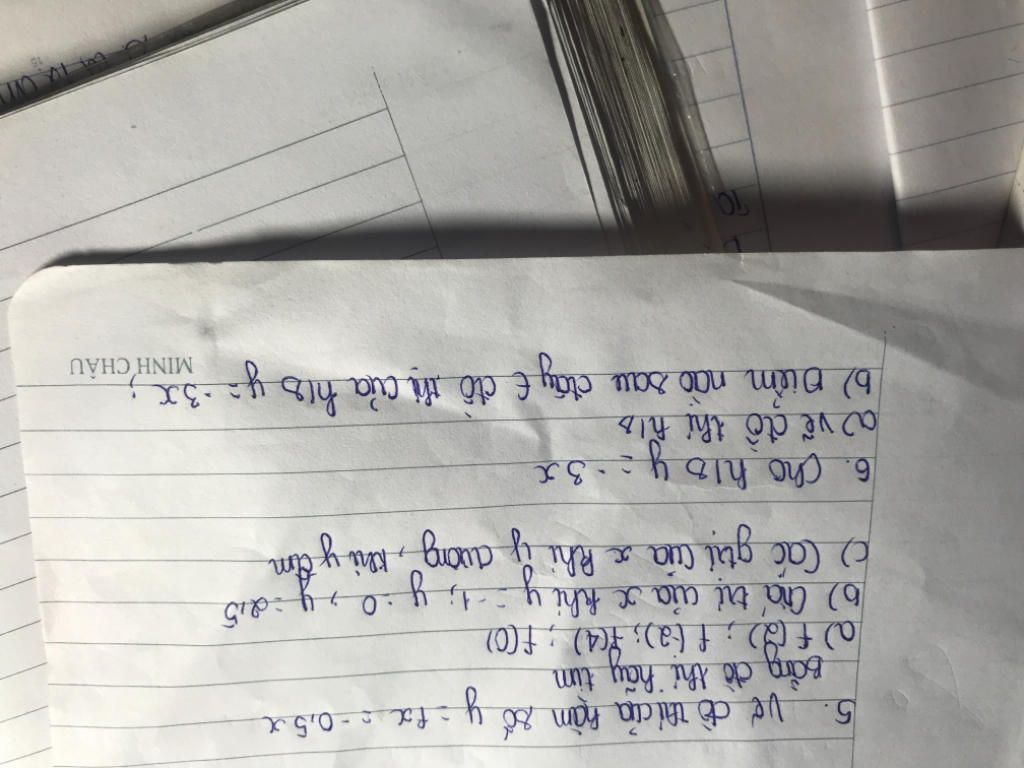 5. Vẽ đồ thị của hàm số y = fx = -0,5x
Bằng đồ thị hãy tìm
a) f(2); f(-2); f(4); f(0)
b) Giá trị của x khi y = -1; y = 0, y = 2,5
c) Các gtrị của x khi y dương, khi y âm
6. Cho h/s y = -3x
a) Vẽ đồ thị h/s
b) Điểm nào sau đây ∈ đồ thị của h/s y = -3x;
MINH CHÂU